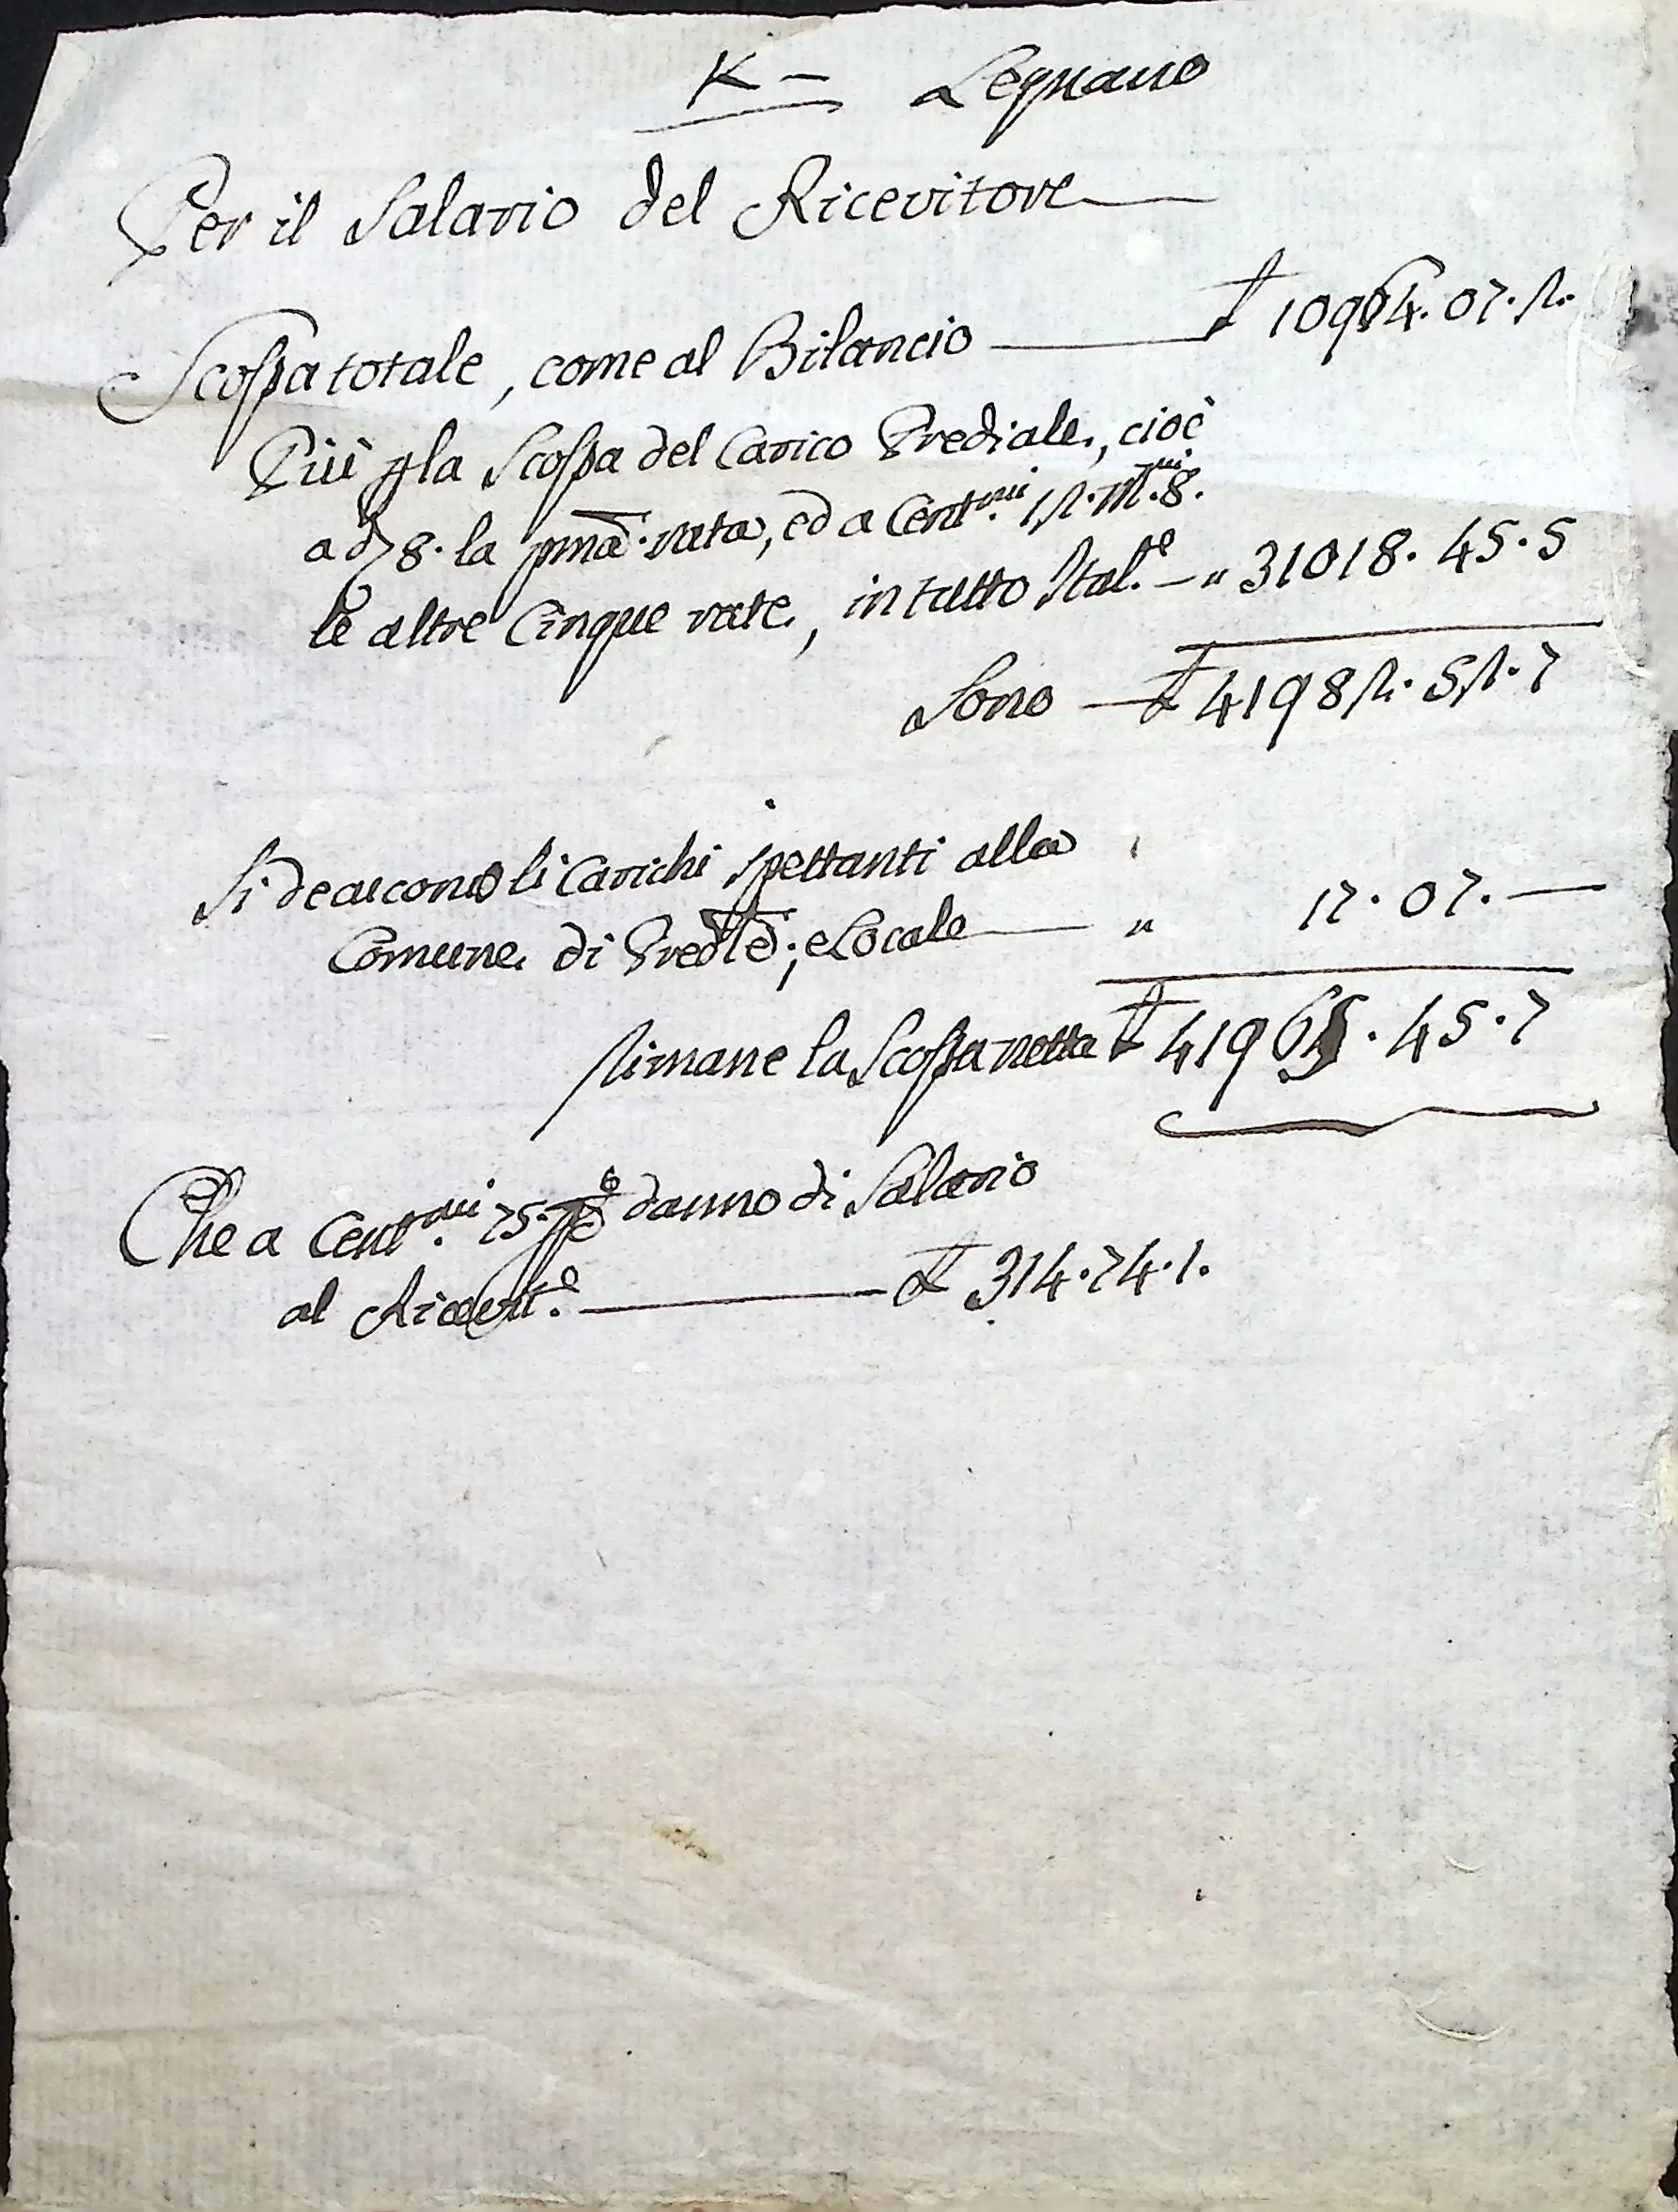 K – Legnano
Per il Salario del Ricevitore
Scoſsa totale, come al Bilancio — £ 10964. 07. 2.
Più p la Scoſsa del Carico Prediale, cioè
a d 8. la pma. rata, ed a Cent.mi 12. M.mi 8.
le altre Cinque rate, in tutto Ital.e — " 31018. 45. 5
Sono — £ 41982. 52. 7
Si deducono li Carichi spettanti alla
Comune di Predle, e Locale — " 17. 07. —
Rimane la Scoſsa netta £ 41965. 45. 7
Che a Cent.mi 75. p% danno di Salario
al Ricevit.e — £ 314. 74. 1.